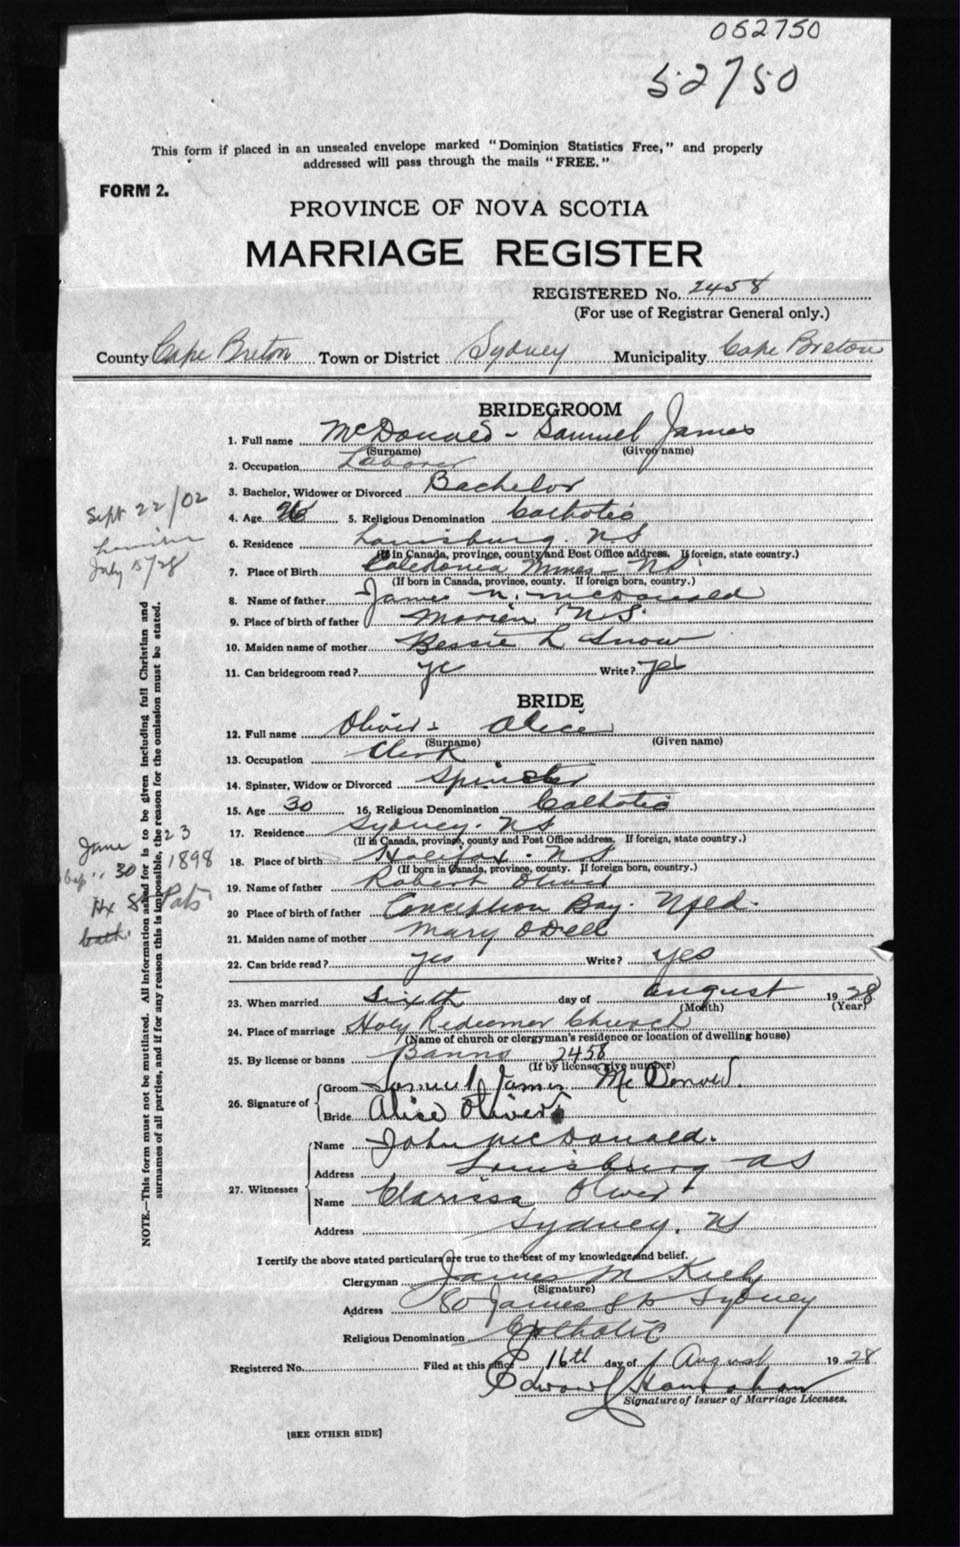 052750
52750
This form if placed in an unsealed envelope marked "Dominion Statistics Free," and properly
addressed will pass through the mails "FREE."
FORM 2.
PROVINCE OF NOVA SCOTIA
MARRIAGE REGISTER
REGISTERED No. 2458
(For use of Registrar General only.)
County Cape Breton Town or District Sydney Municipality Cape Breton
BRIDEGROOM
1. Full name McDonald - Samuel James
(Surname) (Given name)
2. Occupation Laborer
3. Bachelor, Widower or Divorced Bachelor
4. Age 26 5. Religious Denomination Catholic
6. Residence Louisburg. N.S
(If in Canada, province, county and Post Office address. If foreign, state country.)
7. Place of Birth Caledonia Mines - N.S.
(If born in Canada, province, county. If foreign born, country.)
8. Name of father James N. McDonald
9. Place of birth of father Marion N.S.
10. Maiden name of mother Bessie L Snow
11. Can bridegroom read? yes Write? yes
Sept 22/02
July 5/28
BRIDE
12. Full name Oliver - Alice
(Surname) (Given name)
13. Occupation Clerk
14. Spinster, Widow or Divorced Spinster
15. Age 30 16. Religious Denomination Catholic
17. Residence Sydney. N.S
(If in Canada, province, county and Post Office address. If foreign, state country.)
18. Place of birth Halifax. N.S
(If born in Canada, province, county. If foreign born, country.)
19. Name of father Robert Oliver
20 Place of birth of father Conception Bay. Nfld.
21. Maiden name of mother Mary ODell
22. Can bride read? yes Write? yes
June 23
bap " 30 1898
Hx St Pats
bath.
NOTE.—This form must not be mutilated. All information asked for is to be given including full Christian and
surnames of all parties, and if for any reason this is impossible, the reason for the omission must be stated.
23. When married sixth day of August 1928
(Month) (Year)
24. Place of marriage Holy Redeemer Church
(Name of church or clergyman's residence or location of dwelling house)
25. By license or banns Banns 2458
(If by license, give number)
26. Signature of
Groom Samuel James McDonald.
Bride Alice Oliver
27. Witnesses
Name John McDonald.
Address Louisburg NS
Name Clarissa Oliver
Address Sydney. NS
I certify the above stated particulars are true to the best of my knowledge and belief.
Clergyman James M Kiely
(Signature)
Address 80 James St Sydney
Religious Denomination Catholic
Registered No. Filed at this office 16th day of August 1928
Edward
Signature of Issuer of Marriage Licenses.
[SEE OTHER SIDE]